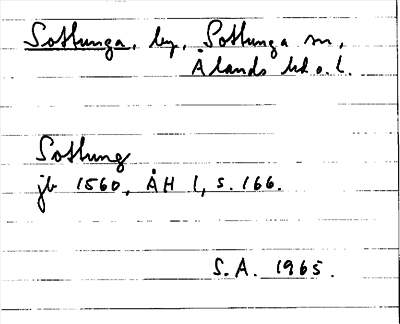 Sottunga, by, Sottunga sn,
Ålands hd o. l.
Sottung
jb 1560, ÅH 1, s. 166.
S.A. 1965.